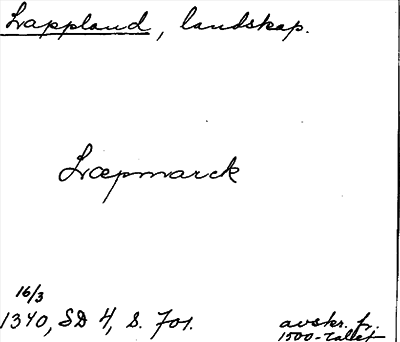 Lappland, landskap.
Læpmarck
16/3
1340, SD 4, S. 701.
avskr. fr.
1500-talet